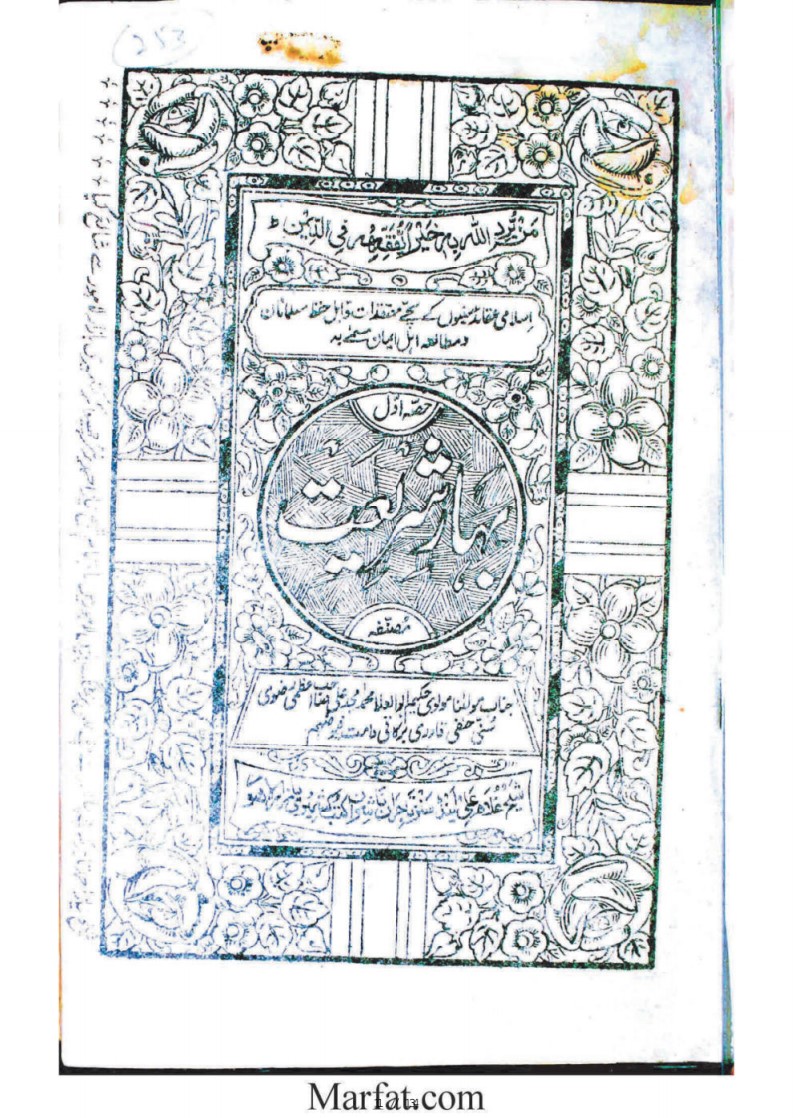 213
مَنْ یُّرِدِ اللّٰہُ بِہٖ خَیْرًا یُّفَقِّہْہُ فِی الدِّیْنِ ط
اسلامی عقائد سنیوں کے سچے معتقدات قابل حفظ مسلمانان
و مطالعہ اہل ایمان مسمے بہ
حصّہ اوّل
بہار شریعت
مصنّفہ
جناب مولٰنا مولوی حکیم ابو العلا محمد امجد علی صاحب اعظمی رضوی
سُنّی حنفی قادری برکاتی دامت فیوضہم
شیخ غلام علی اینڈ سنز تاجران ناشران کتب کشمیری بازار لاہور
Marfat.com